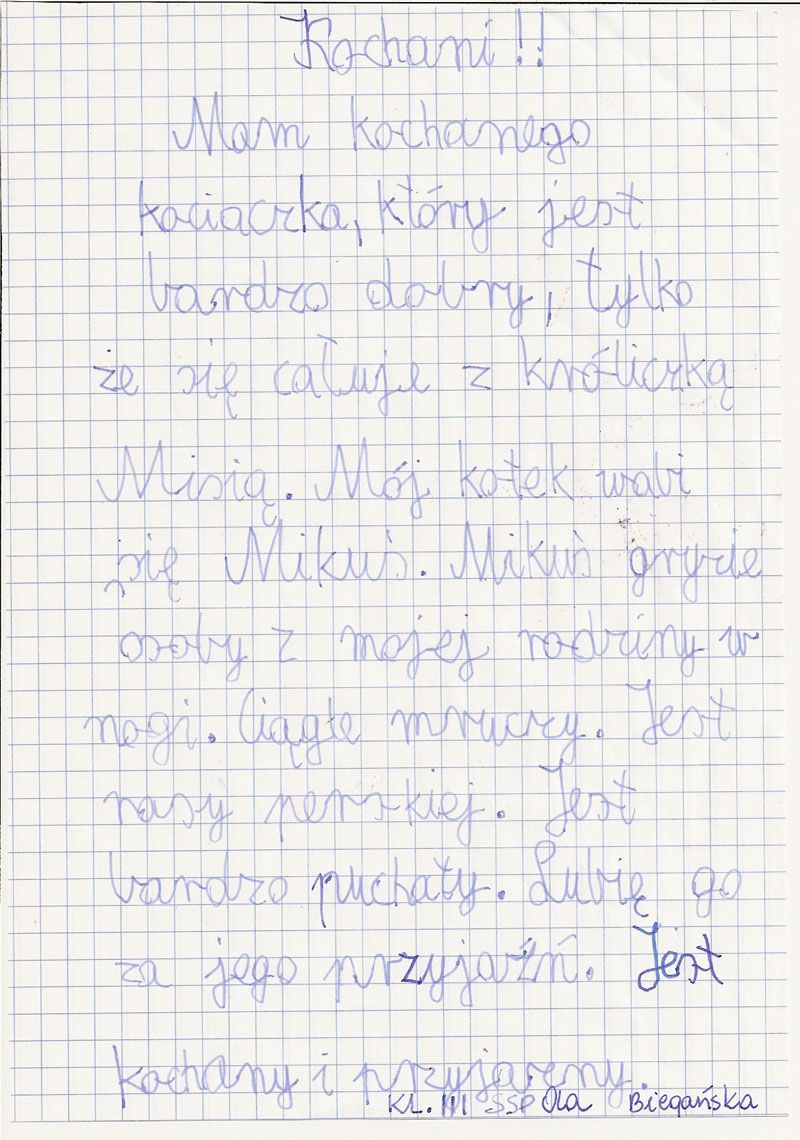 Kochani!!
Mam kochanego
kociaczka, który jest
bardzo dobry, tylko
że się całuje z króliczką
Misią. Mój kotek wabi
się Mikuś. Mikuś gryzie
osoby z mojej rodziny w
nogi. Ciągle mruczy. Jest
rasy perskiej. Jest
bardzo puchaty. Lubię go
za jego przyjaźń. Jest
kochany i przyjazny.
KL. III SSP Ola Biegańska